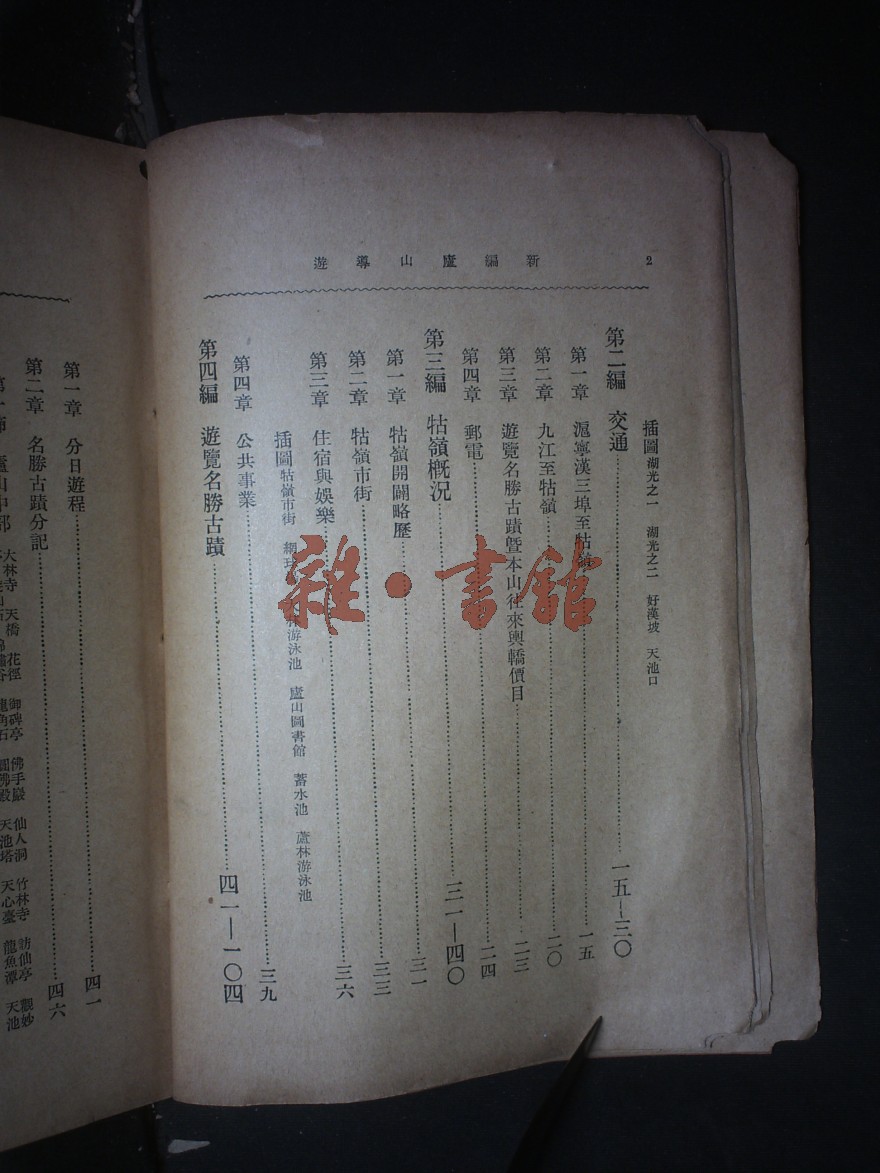 新編廬山導遊 2
插圖 湖光之一 湖光之二 好漢坡 天池口
第二編 交通 一五—三〇
第一章 滬寧漢三埠至牯嶺 一五
第二章 九江至牯嶺 二〇
第三章 遊覽名勝古蹟暨本山往來輿轎價目 二三
第四章 郵電 二四
第三編 牯嶺概況 三一—四〇
第一章 牯嶺開闢略歷 三一
第二章 牯嶺市街 三三
第三章 住宿與娛樂 三六
插圖 牯嶺市街 游泳池 廬山圖書館 蓄水池 蘆林游泳池
第四章 公共事業 三九
第四編 遊覽名勝古蹟 四一—一〇四
第一章 分日遊程 四一
第二章 名勝古蹟分記 四六
大林寺 天橋 花徑 御碑亭 佛手巖 仙人洞 竹林寺 訪仙亭 觀妙
圓佛殿 天池塔 天心臺 龍魚潭 天池
雜·書館